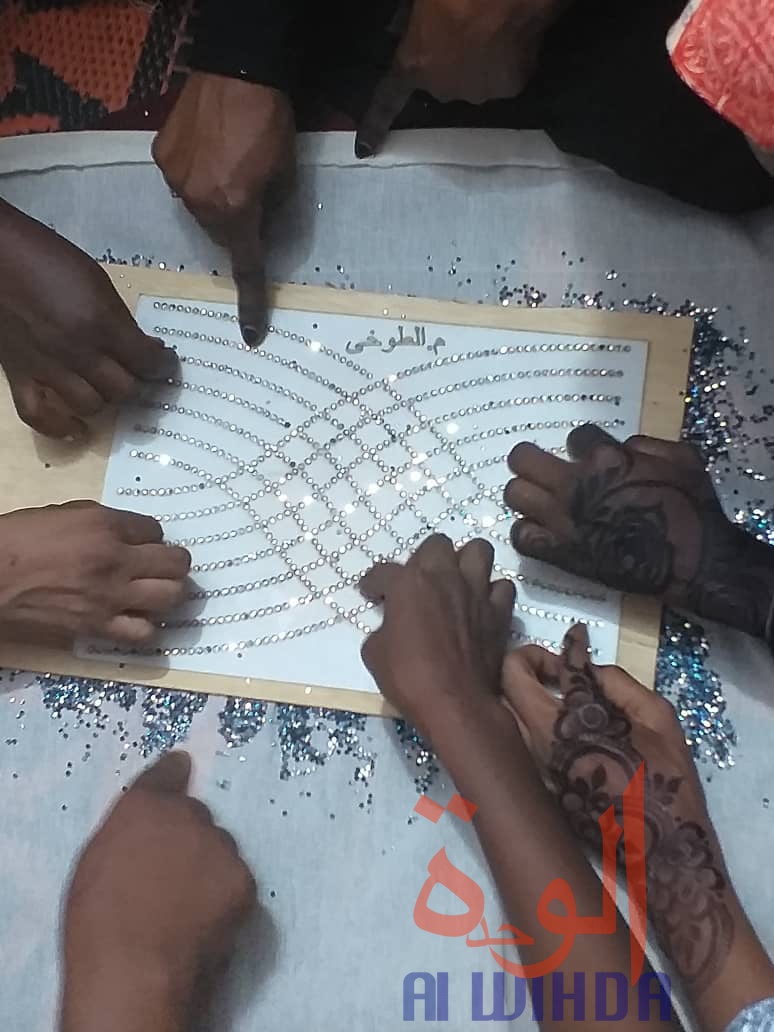 م.الطوخى
الوحدة
Al WIHDA